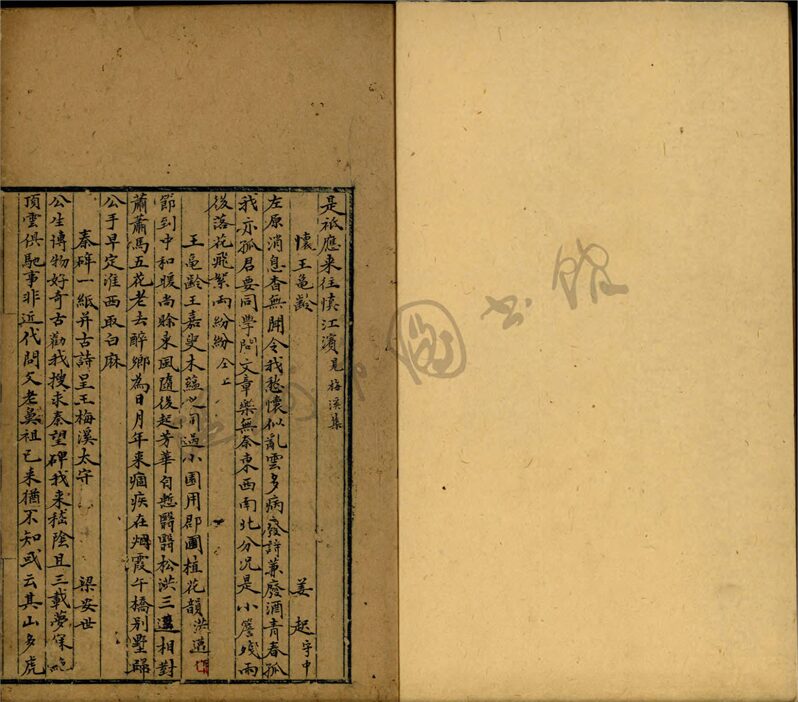 是祇應来往慎江濱 見梅溪集
懷王亀齡 姜起 字中
左原消息杳無聞令我愁懷似亂雲多病廢詩兼廢酒青春孤
我亦孤君要同學問文章樂無奈東西南北分况是小簷殘雨
後落花飛絮兩紛紛 仝上
王亀齡王嘉叟木蘊之同過小圃用郡圃植花韻 洪适
節到中和暖尚賒東風隨後起芳華自慙翳翳松洪三逕相對
蕭蕭馬五花老去醉鄉為日月年来痼疾在烟霞午橋别墅歸
公手早定淮西取白麻
秦碑一紙并古詩呈王梅溪太守 梁安世
公生博物好奇古勸我搜求秦望碑我来嵇陰且三載夢寐
頂雲俱馳事非近代問文老奠祖已来猶不知或云其山多虎
圖書館